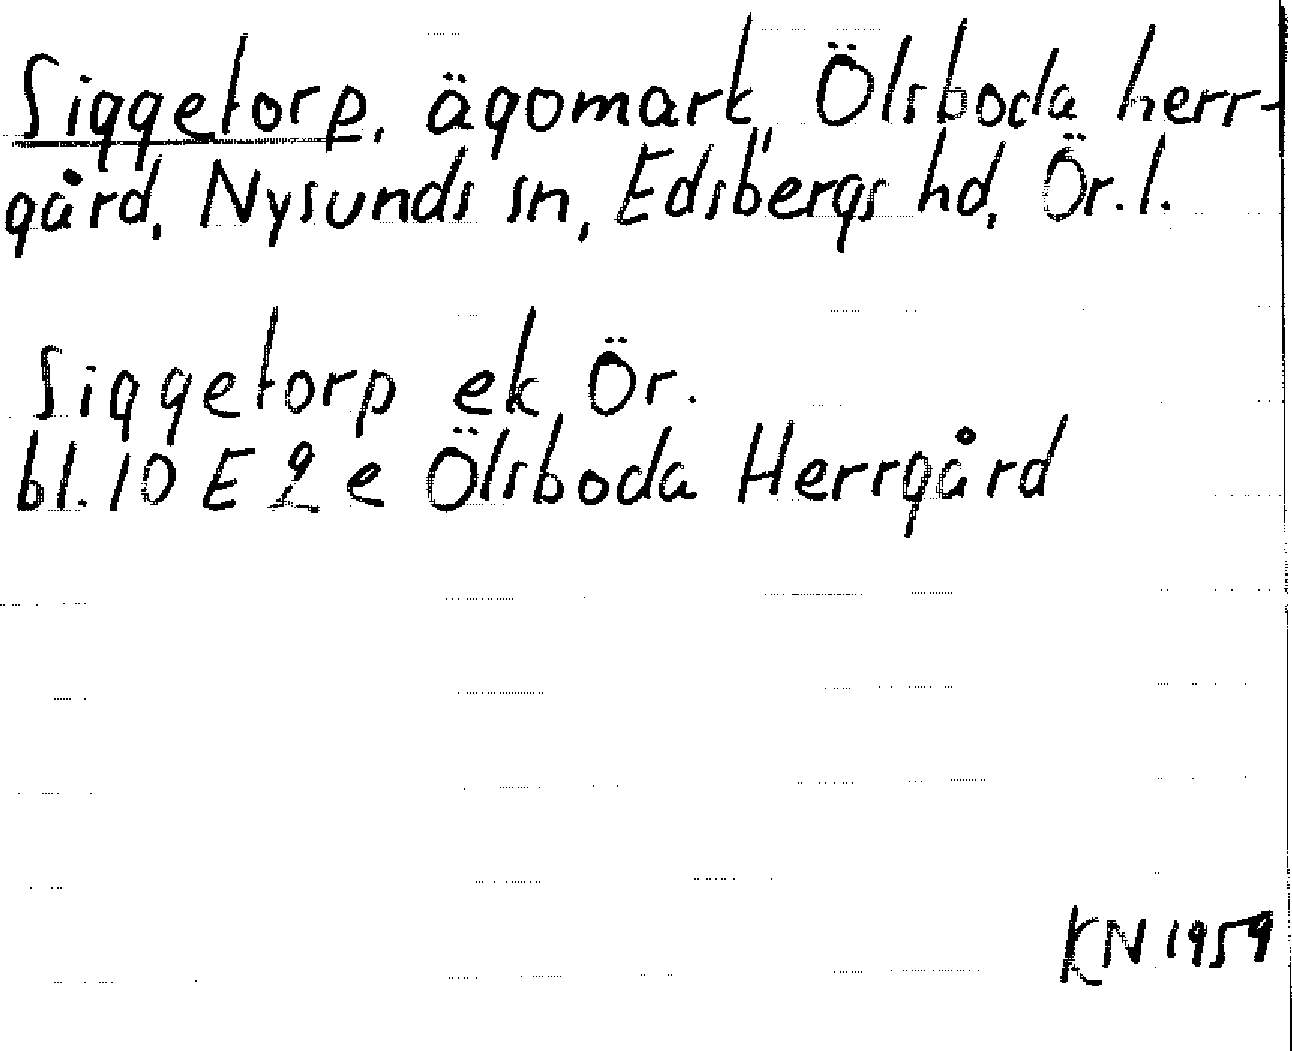 Siggetorp, ägomark, Ölsboda herr-
gård, Nysunds sn, Edsbergs hd, Ör. l.
Siggetorp ek Ör.
bl. 10 E 2 e Ölsboda Herrgård
KN 1959